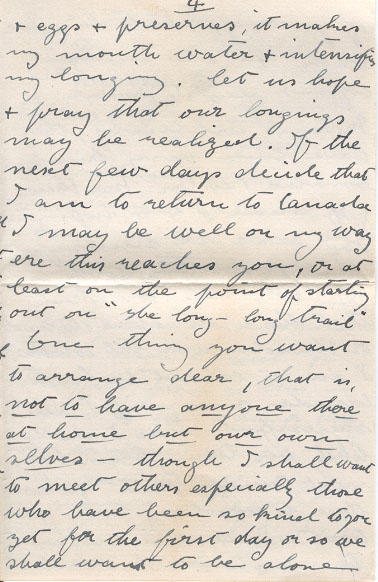 4
+ eggs + preserves, it makes
my mouth water + intensifies
my longing. Let us hope
+ pray that our longings
may be realized. If the
next few days decide that
I am to return to Canada
I may be well on my way
ere this reaches you, or at
least on the point of starting
out on "the long - long trail"
One thing you want
to arrange dear, that is,
not to have anyone there
at home but our own
selves - though I shall want
to meet others especially those
who have been so kind to you
yet for the first day or so we
shall want to be alone